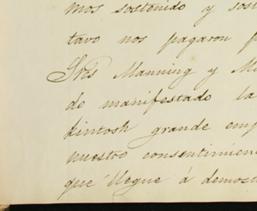 mos sostenido y sost
tavo nos pagaron p
Sres Manning y M
de manifestado la
kintosh grande emp
nuestro consentimien
que llegue á demost